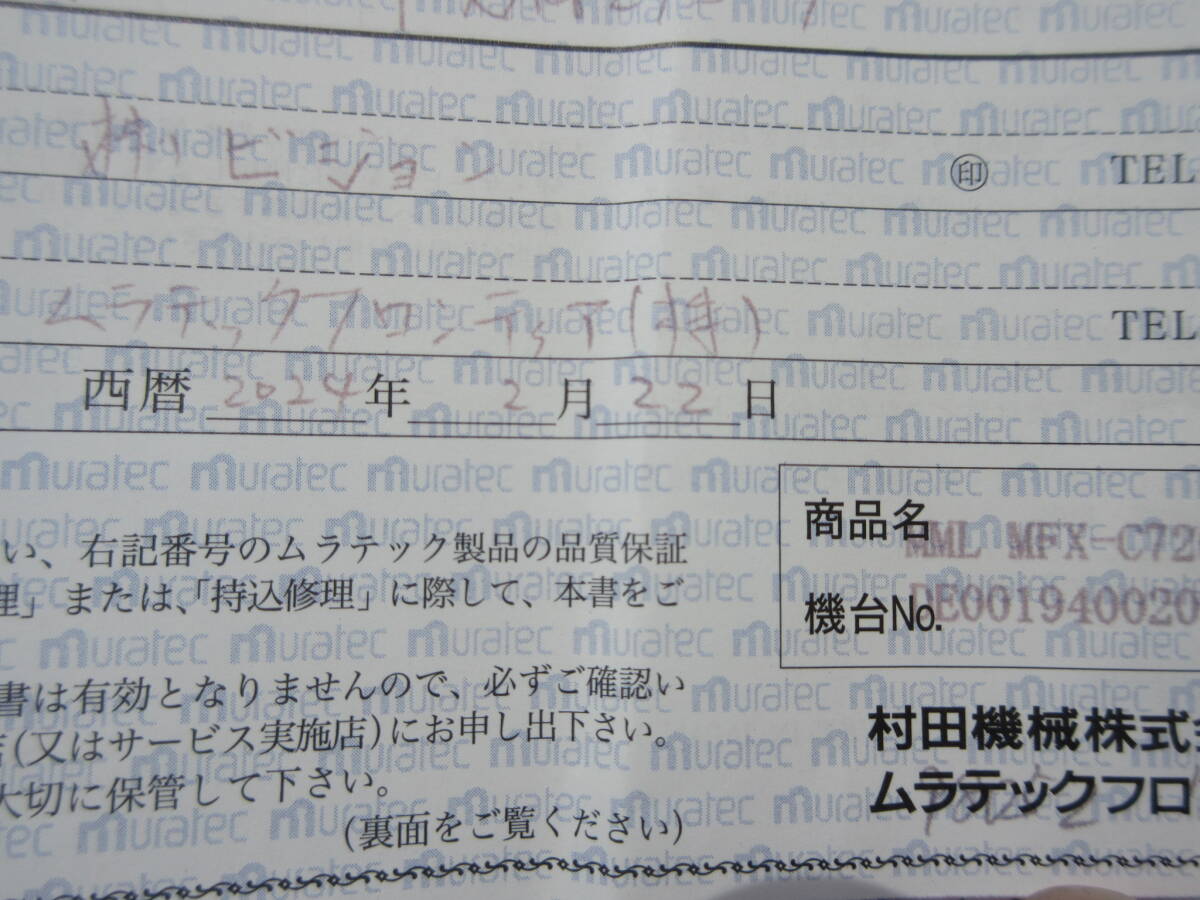 (株)ビジョン
㊞ TEL
ムラテックフロンティア(株)
TEL
西暦 2024年 2月 22日
い、右記番号のムラテック製品の品質保証
理」または、「持込修理」に際して、本書をご
書は有効となりませんので、必ずご確認い
店(又はサービス実施店)にお申し出下さい。
大切に保管して下さい。
(裏面をご覧ください)
商品名 MML MFX-C72
機台No. DE001940020
村田機械株式
ムラテックフロ
muratec